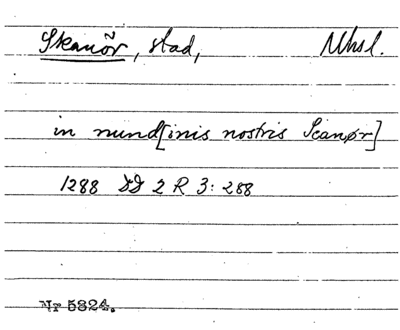 Skanör, stad, Mhsl.
in nund[inis nostris Scanør]
1288 DD 2 R 3: 288
Nr 5324.